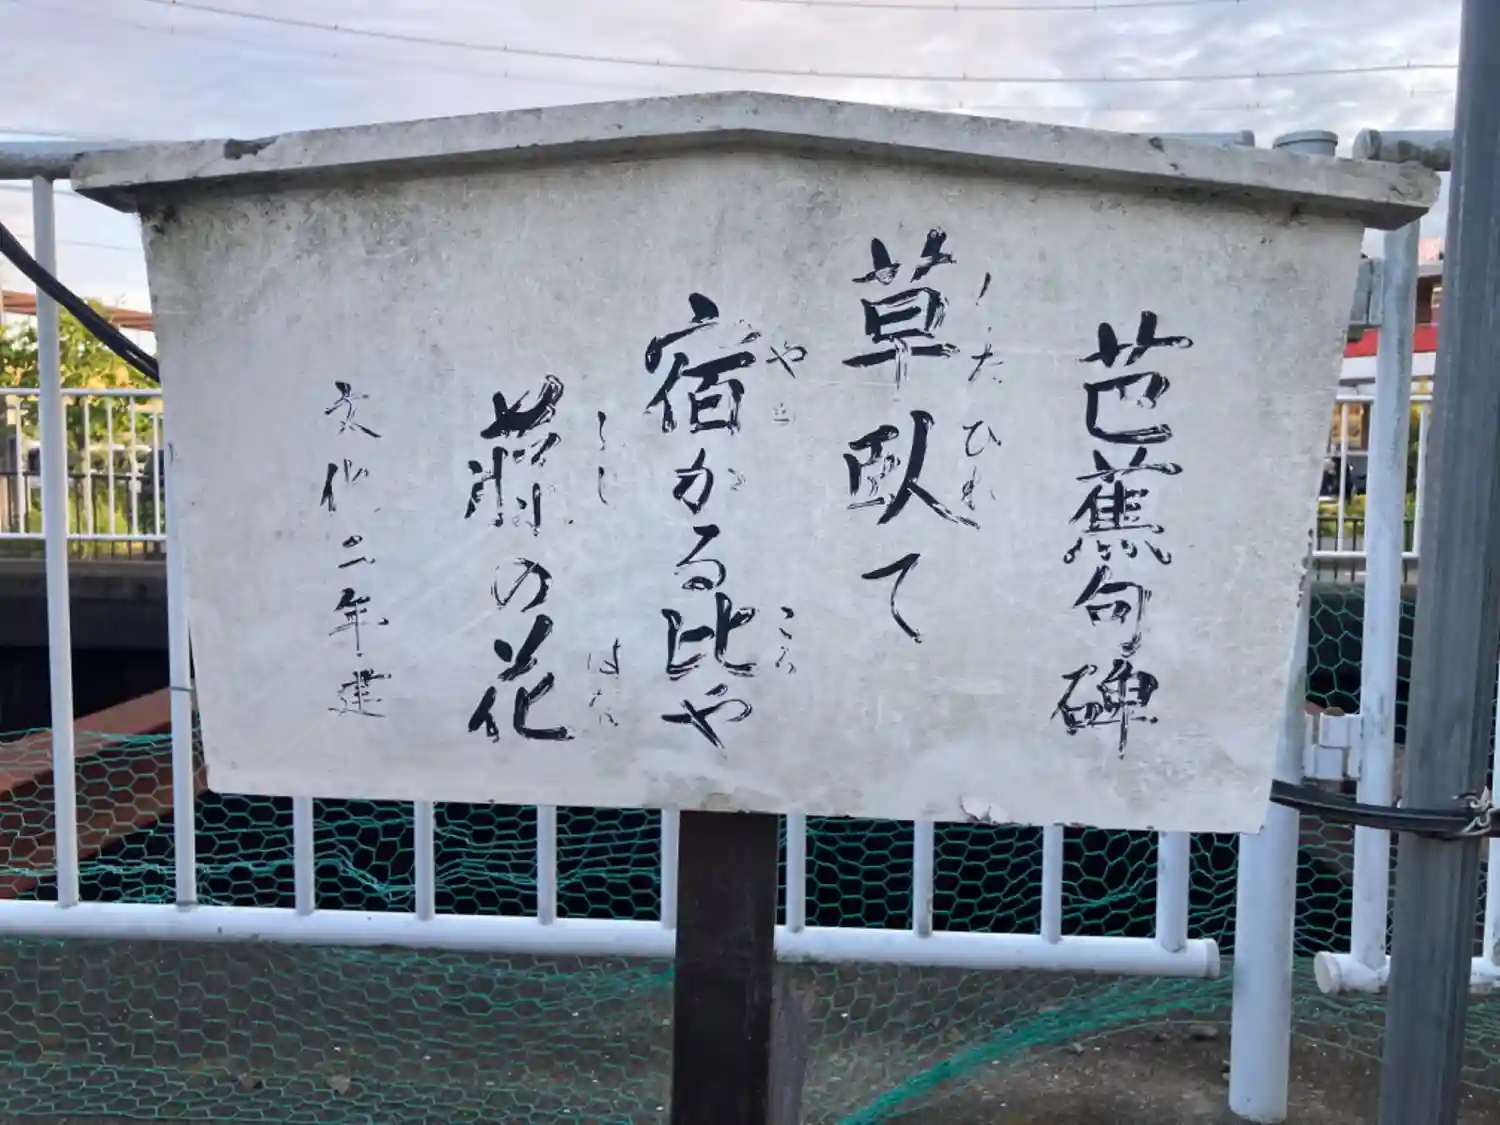 芭蕉句碑
くたひれ
草臥て
やと ころ
宿かる比や
ふし はな
藤の花
文化二年建